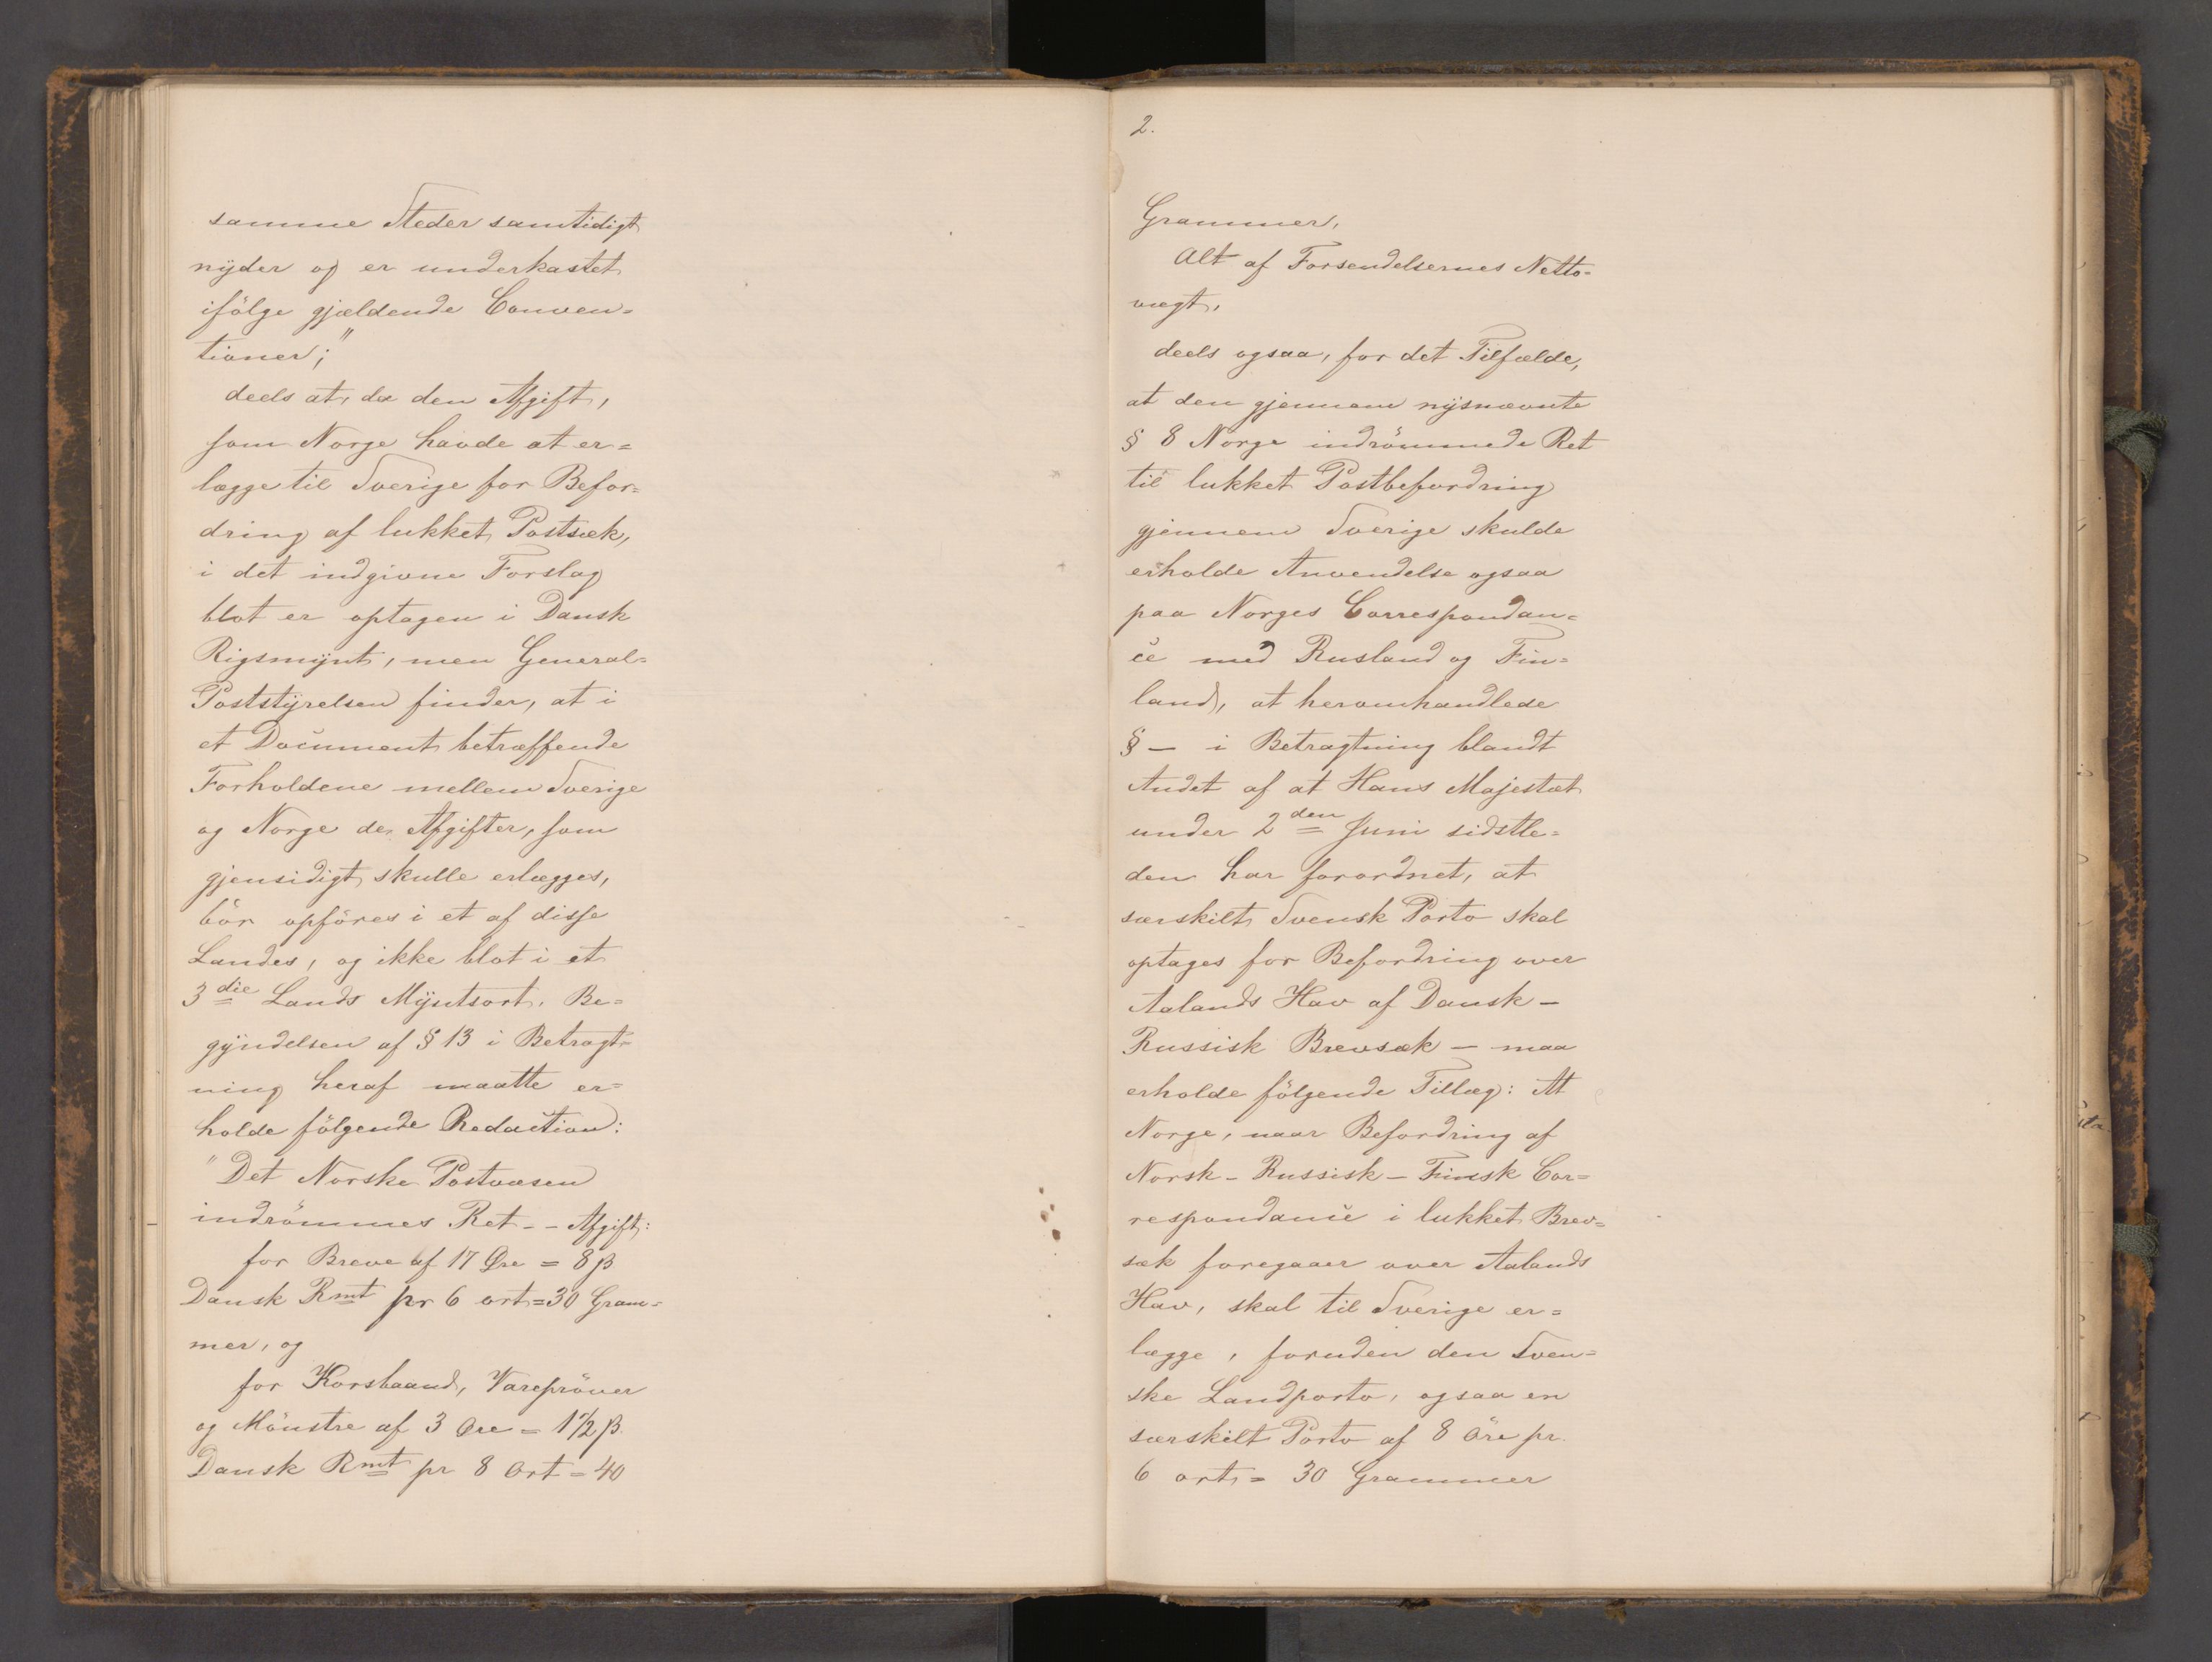 samme Steder samtidigt
nyder og er underkastet
ifölge gjældende Conven=
tioner;"
deels at, da den Afgift,
som Norge havde at er=
lægge til Sverige for Befor=
dring af lukket Postsæk,
i det indgivne Forslag
blot er optagen i Dansk
Rigsmynt, men General=
Poststyrelsen finder, at i
et Document betræffende
Forholdene mellem Sverige
og Norge de Afgifter, som
gjensidigt skulle erlægges,
bör opföres i et af disse
Landes, og ikke blot i et
3die Lands Myntsort. Be=
gyndelsen af § 13 i Betragt=
ning heraf maatte er=
holde fölgende Redaction:
"Det Norske Postvæsen
indrömmes Ret -- Afgift:
for Breve af 17 Øre = 8 β
Dansk Rmt pr 6 ort=30 Gram=
mer, og
for Korsbaand, Varepröver
og Mönstre af 3 Øre = 1 1/2 β.
Dansk Rmt pr 8 Ort = 40
2.
Grammer,
Alt af Forsendelsernes Netto=
vægt,
deels ogsaa, for det Tilfælde,
at den gjennem nysnævnte
§ 8 Norge indrömmede Ret
til lukket Postbefordring
gjennem Sverige skulde
erholde Anvendelse ogsaa
paa Norges Correspondan=
ce med Rusland og Fin=
land, at heromhandlede
§ — i Betragtning blandt
Andet af at Hans Majestæt
under 2den Juni sidstle=
den har forordnet, at
særskilt Svensk Porto skal
optages for Befordring over
Aalands Hav af Dansk —
Russisk Brevsæk — maa
erholde fölgende Tillæg: At
Norge, naar Befordring af
Norsk - Russisk - Finsk Cor=
respondance i lukket Brev=
sæk foregaaer over Aalands
Hav, skal til Sverige er=
lægge, foruden den Sven=
ske Landporto, ogsaa en
særskilt Porto af 8 öre pr.
6 ort = 30 Grammer